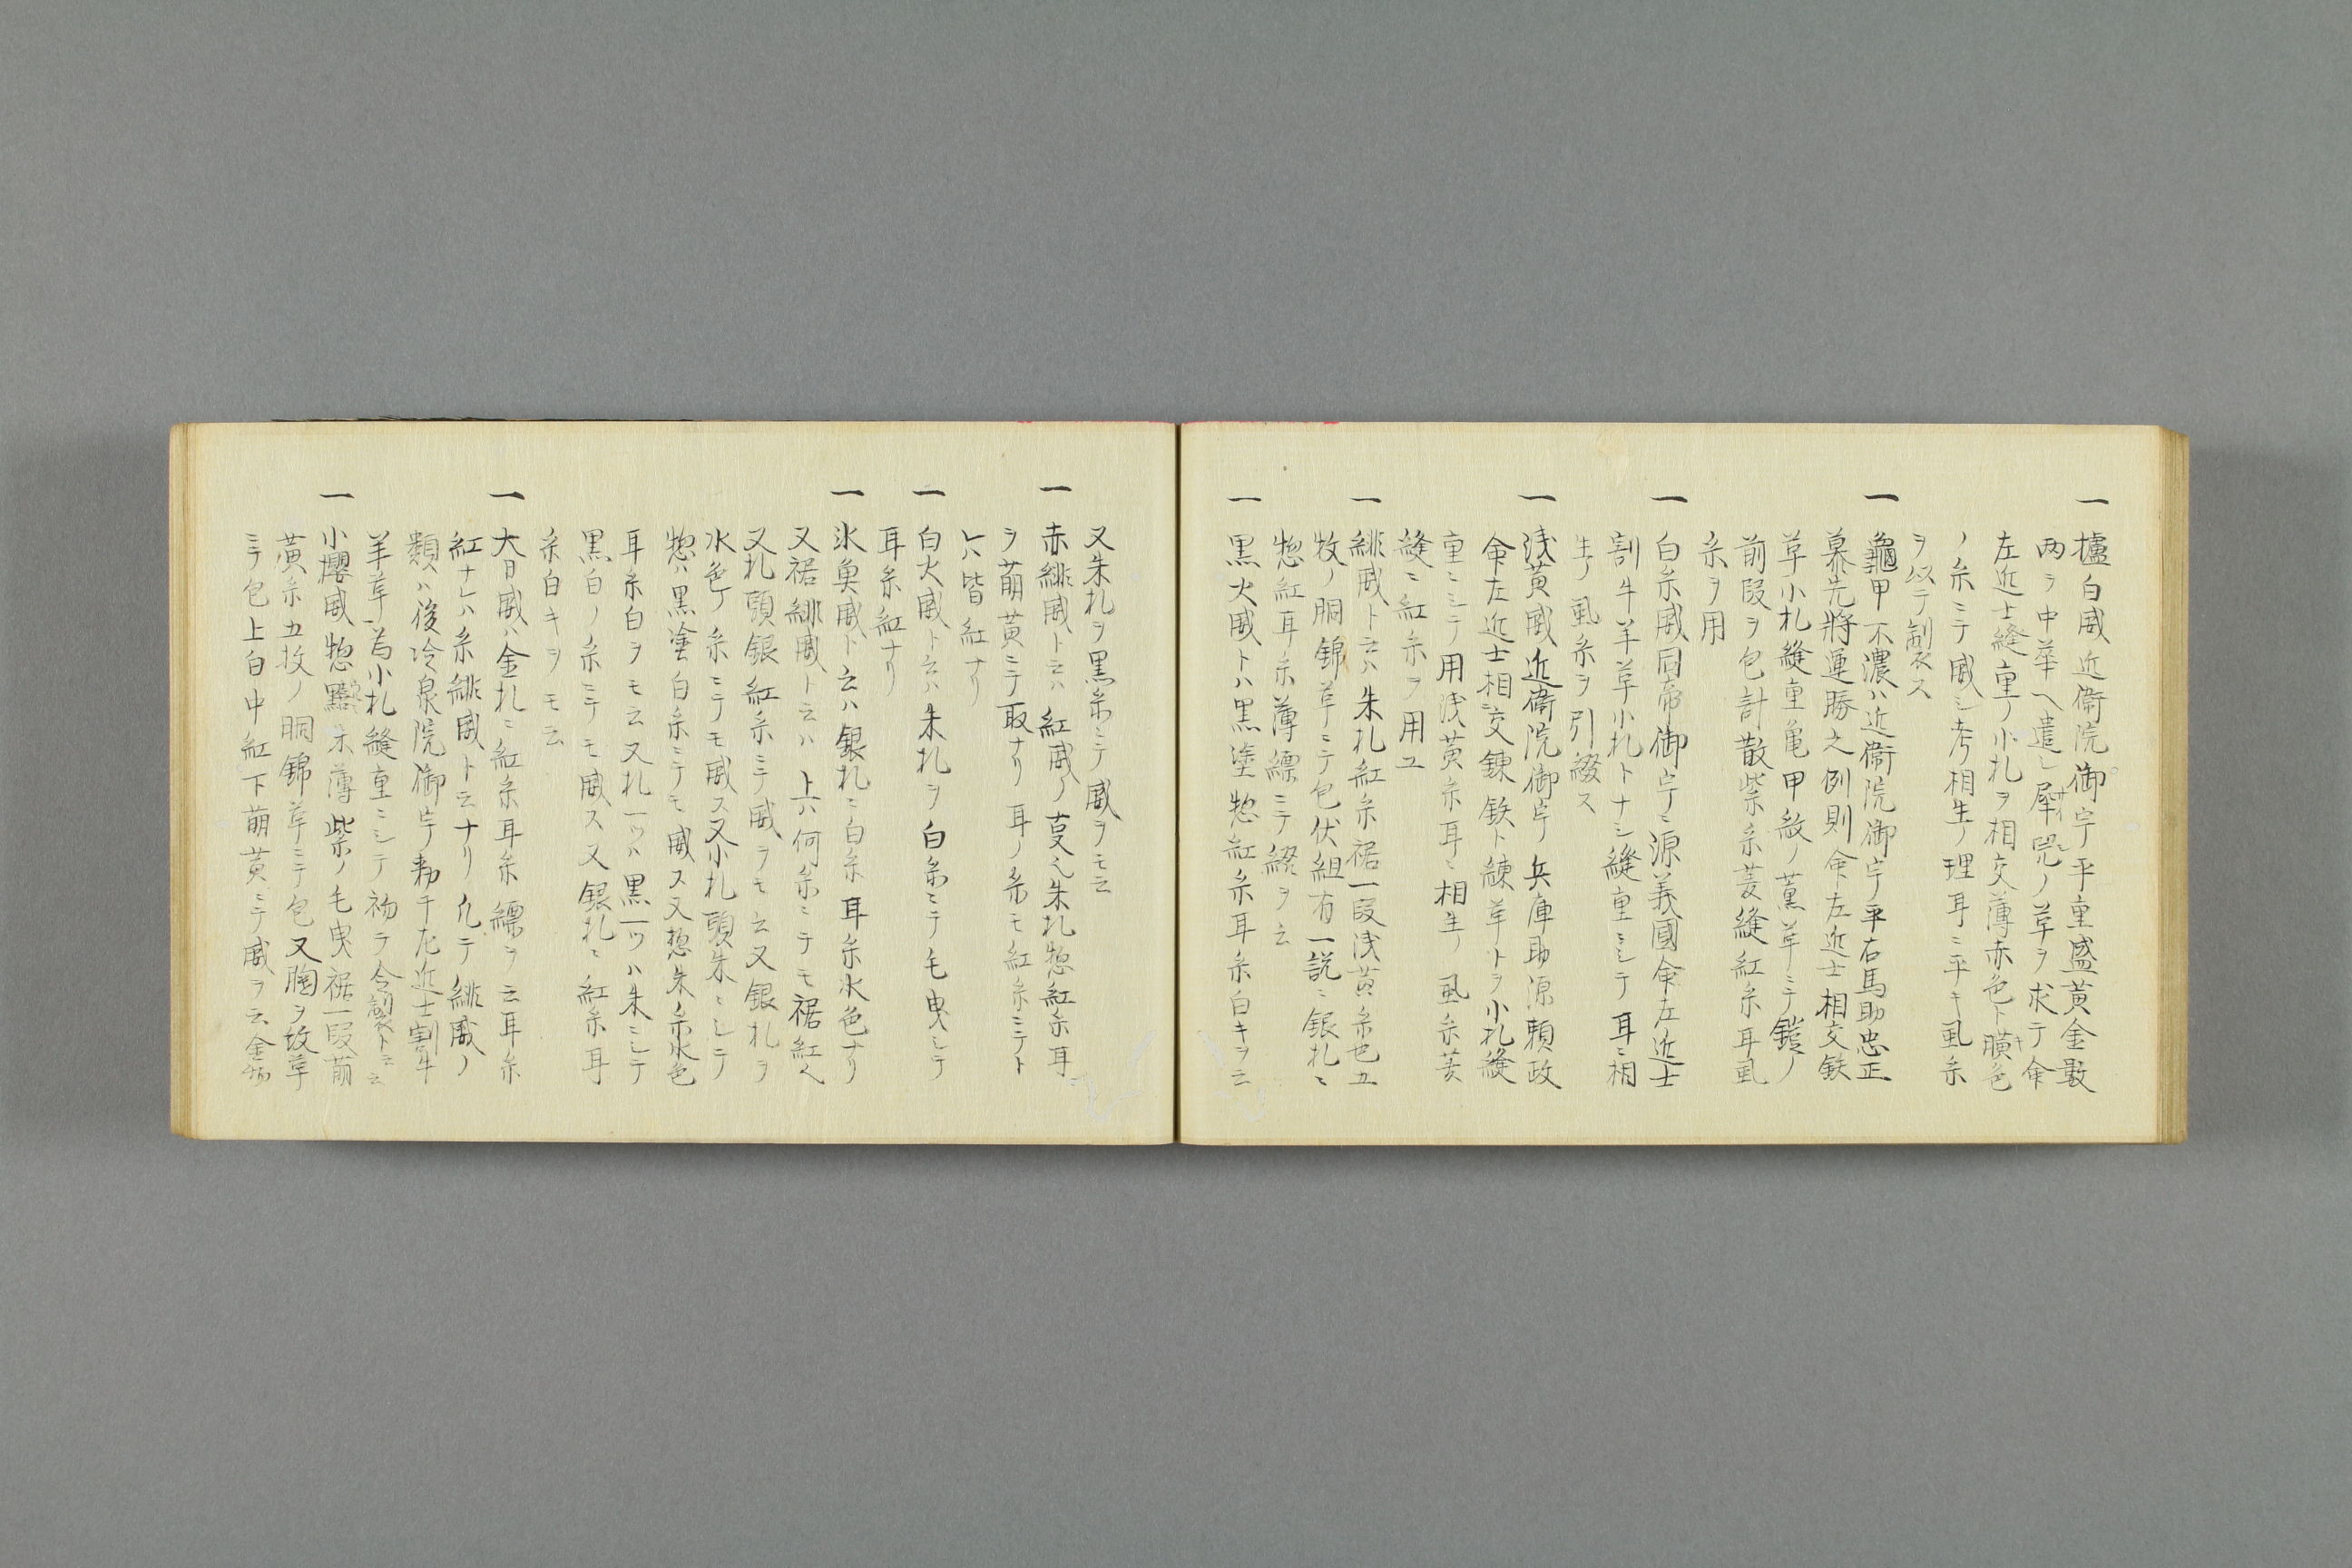 一 櫨白威近衛院御宇平重盛黄金数
両ヲ中華ヘ遣シ犀兕ノ革ヲ求テ命
左近士縫重ノ小札ヲ相交薄赤色ト黄色
ノ糸ニテ威シ考相生ノ理耳ニ平キ虱糸
ヲ以テ制衣ス
一 龜甲不濃ハ近衛院御宇平右馬助忠正
慕先將運勝之例則命左近士相交鉄
草小札縫重亀甲紋ノ薫革ニテ鎧ノ
前段ヲ包計散紫糸菱縫紅糸耳虱
糸ヲ用
一 白糸威同帝御宇ニ源義國命左近士
割牛羊革小札トナシ縫重ニシテ耳ニ相
生ノ虱糸ヲ引綴ス
一 浅黄威近衛院御宇ノ兵庫助源頼政
命左近士相ニ交錬鉄ト練革トヲ小札縫
重ニシテ用浅黄糸耳ニ相生ノ虱糸菱
縫ニ紅糸ヲ用ユ
一 緋威ト云ハ朱札紅糸裾一段浅黄糸也五
枚ノ胴錦革ニテ包伏組有一説ニ銀札ニ
惣紅耳糸薄縹ニテ綴ヲ云
一 黒火威トハ黒塗惣紅糸耳糸白キヲ云
又朱札ヲ黒糸ニテ威ヲモ云
一 赤緋威ト云ハ紅威ノ叓也朱札惣紅糸耳
ヲ萠黄ニテ取ナリ耳ノ糸モ紅糸ニテト
レハ皆紅ナリ
一 白火威ト云ハ朱札ヲ白糸ニテ毛曳ニシテ
耳糸紅ナリ
一 氷魚威ト云ハ銀札ニ白糸耳糸水色ナリ
又裾緋威ト云ハ上ハ何糸ニテモ裾紅也
又札頭銀紅糸ニテ威ヲモ云又銀札ヲ
水色ノ糸ニテモ威ス又小札頭朱ニシテ
惣ハ黒塗白糸ニテモ威ス又惣朱糸水色
耳糸白ヲモ云又札一ツハ黒一ツハ朱ニシテ
黒白ノ糸ニテモ威ス又銀札ニ紅糸耳
糸白キヲモ云
一 大日威ハ金札ニ紅糸耳糸縹ヲ云耳糸
紅ナレハ糸緋威ト云ナリ凡テ緋威ノ
類ハ後冷泉院御宇勅干左近士割牛
羊革為小札縫重ニシテ初テ令製衣ト云云
一 小櫻威惣黒朱薄紫ノ毛曳裾一段萠
黄糸五枚ノ胴錦革ニテ包又胸ヲ紋革
ニテ包上白中紅下萠黄ニテ威ヲ云金物